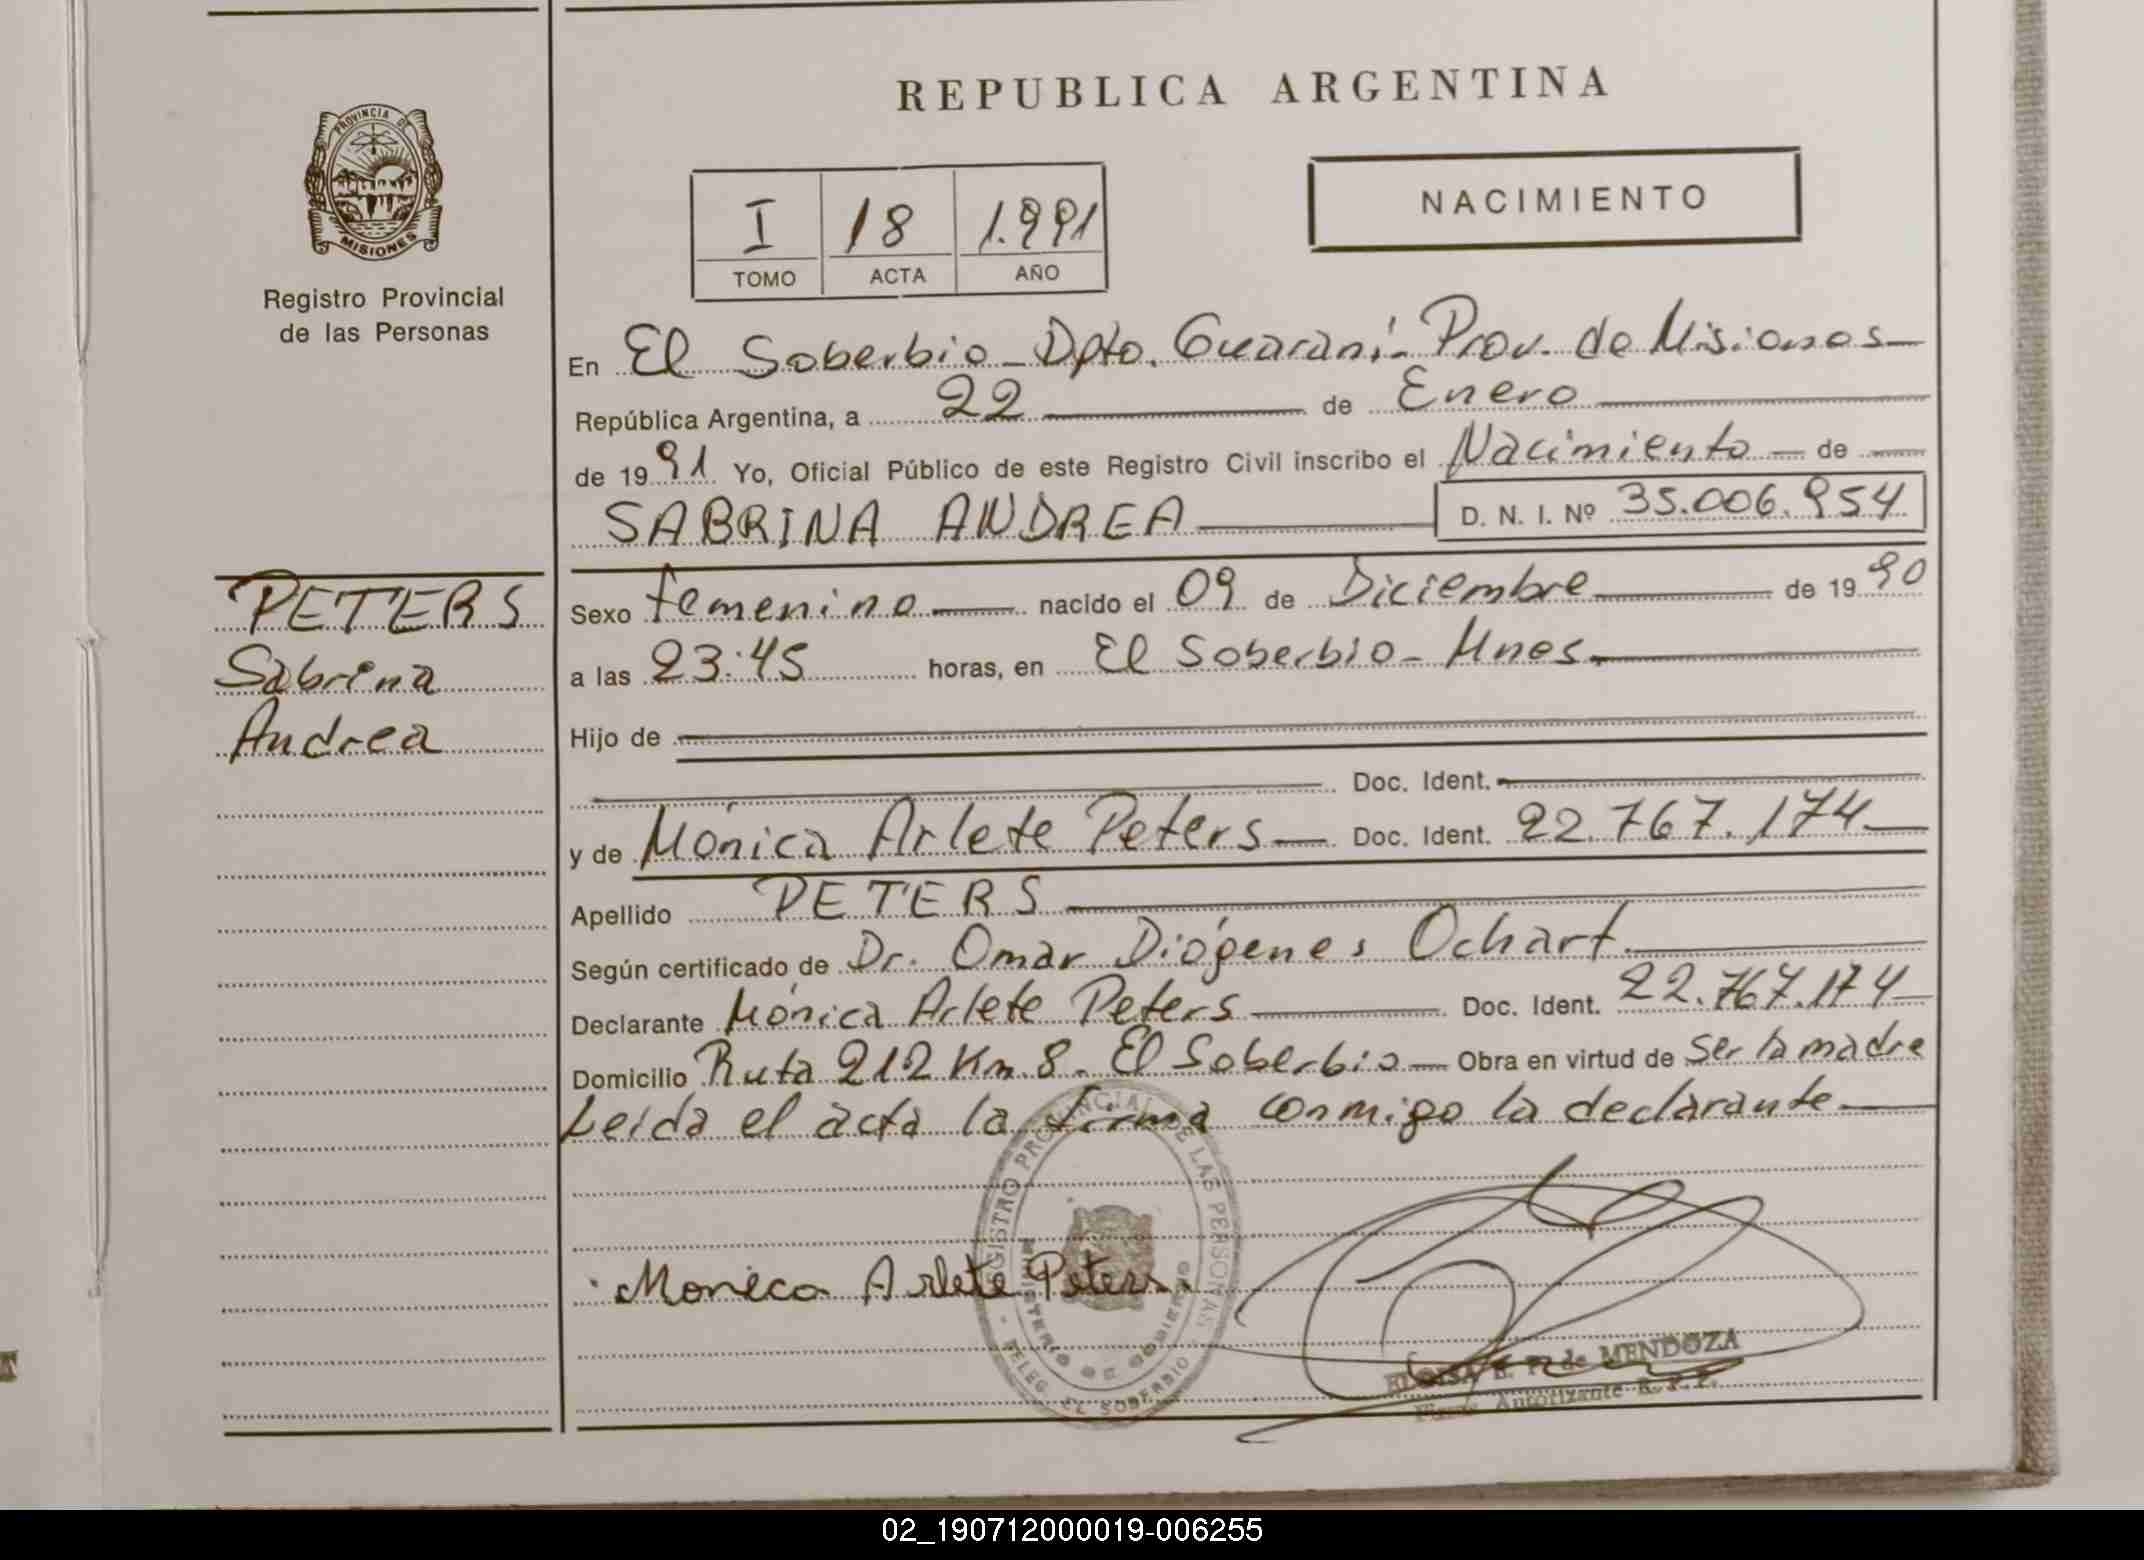 REPUBLICA ARGENTINA
PROVINCIA DE MISIONES
Registro Provincial
de las Personas
NACIMIENTO
I 18 1.991
TOMO ACTA AÑO
En El Soberbio - Dpto. Guaraní - Prov. de Misiones
República Argentina, a 22 de Enero
de 1991 Yo, Oficial Público de este Registro Civil inscribo el Nacimiento de
SABRINA ANDREA D. N. I. Nº 35.006.954
PETERS
Sabrina
Andrea
Sexo femenino nacido el 09 de Diciembre de 1990
a las 23:45 horas, en El Soberbio - Mnes.
Hijo de
Doc. Ident.
y de Mónica Arlete Peters Doc. Ident. 22.767.174
Apellido PETERS
Según certificado de Dr. Omar Diógenes Ochart
Declarante Mónica Arlete Peters Doc. Ident. 22.767.174
Domicilio Ruta 212 Km 8. El Soberbio Obra en virtud de ser la madre
Leída el acta la firma conmigo la declarante
REGISTRO PROVINCIAL DE LAS PERSONAS
MINISTERIO DE GOBIERNO
DELEG. EL SOBERBIO
Monica Arlete Peters.
ELOISA de MENDOZA
Autorizante R. P. P.
02_190712000019-006255